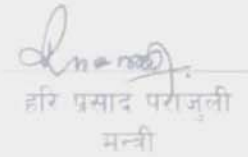 हरि प्रसाद पराजुली
मन्त्री